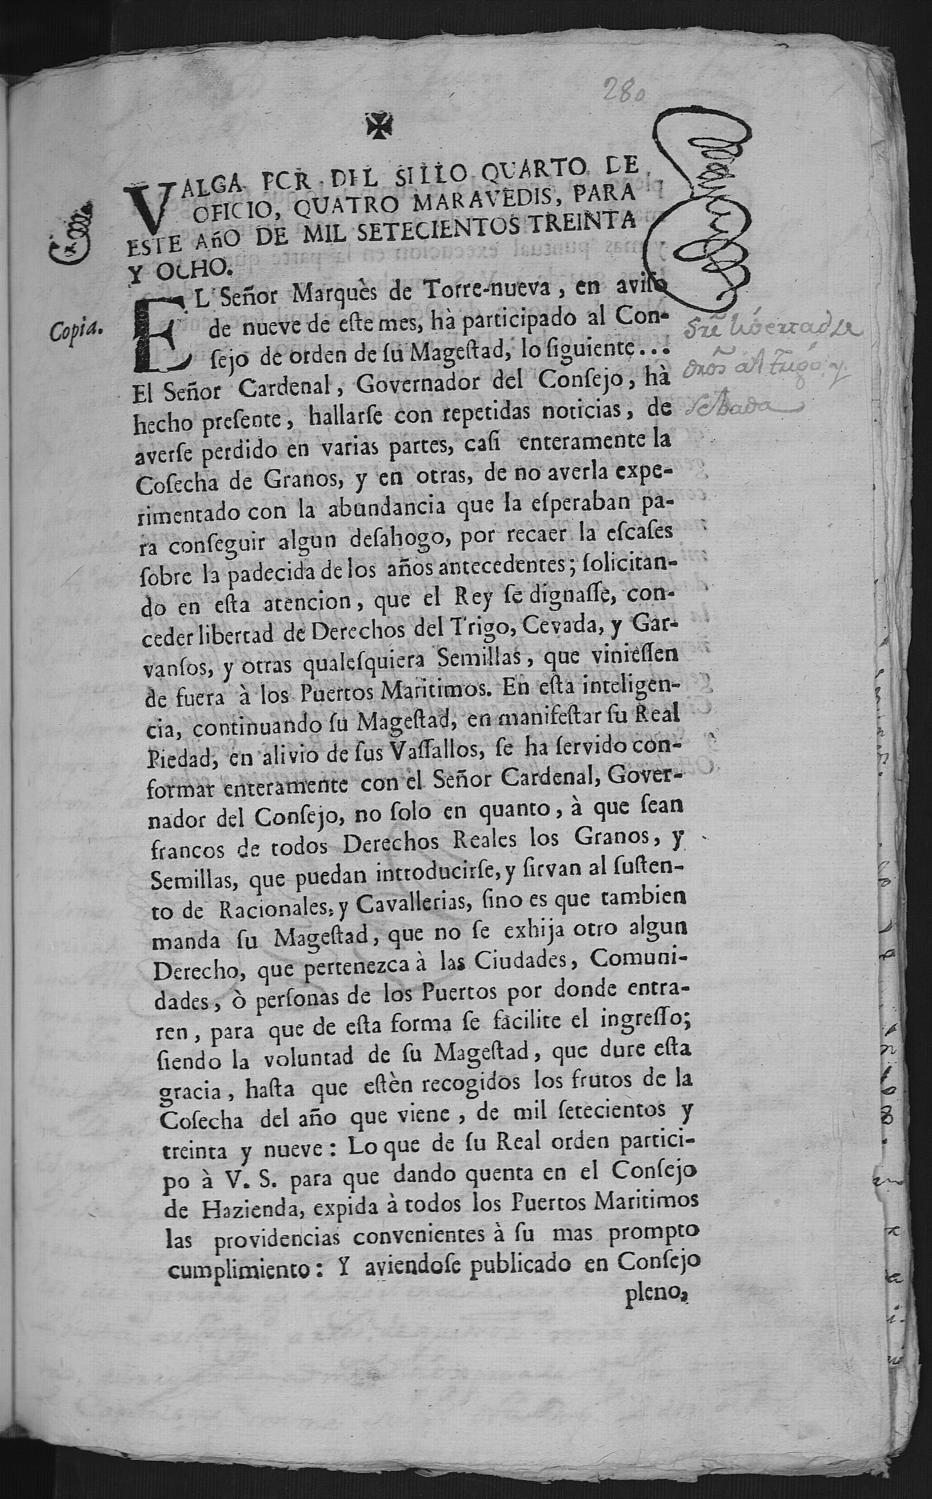 280
✠
VALGA POR DEL SILLO QUARTO DE
OFICIO, QUATRO MARAVEDIS, PARA
ESTE AñO DE MIL SETECIENTOS TREINTA
Y OCHO.
Copia.
EL Señor Marquès de Torre-nueva, en aviſo
de nueve de eſte mes, hà participado al Con-
ſejo de orden de ſu Mageſtad, lo ſiguiente...
El Señor Cardenal, Governador del Conſejo, hà
hecho preſente, hallarſe con repetidas noticias, de
averſe perdido en varias partes, caſi enteramente la
Coſecha de Granos, y en otras, de no averla expe-
rimentado con la abundancia que la eſperaban pa-
ra conſeguir algun deſahogo, por recaer la eſcaſes
ſobre la padecida de los años antecedentes; ſolicitan-
do en eſta atencion, que el Rey ſe dignaſſe, con-
ceder libertad de Derechos del Trigo, Cevada, y Gar-
vanſos, y otras qualeſquiera Semillas, que vinieſſen
de fuera à los Puertos Maritimos. En eſta inteligen-
cia, continuando ſu Mageſtad, en manifeſtar ſu Real
Piedad, en alivio de ſus Vaſſallos, ſe ha ſervido con-
formar enteramente con el Señor Cardenal, Gover-
nador del Conſejo, no ſolo en quanto, à que ſean
francos de todos Derechos Reales los Granos, y
Semillas, que puedan introducirſe, y ſirvan al ſuſten-
to de Racionales, y Cavallerias, ſino es que tambien
manda ſu Mageſtad, que no ſe exhija otro algun
Derecho, que pertenezca à las Ciudades, Comuni-
dades, ò perſonas de los Puertos por donde entra-
ren, para que de eſta forma ſe facilite el ingreſſo;
ſiendo la voluntad de ſu Mageſtad, que dure eſta
gracia, haſta que eſtèn recogidos los frutos de la
Coſecha del año que viene, de mil ſetecientos y
treinta y nueve: Lo que de ſu Real orden partici-
po à V. S. para que dando quenta en el Conſejo
de Hazienda, expida à todos los Puertos Maritimos
las providencias convenientes à ſu mas prompto
cumplimiento: Y aviendoſe publicado en Conſejo
pleno,
libertad de
Trigo, y